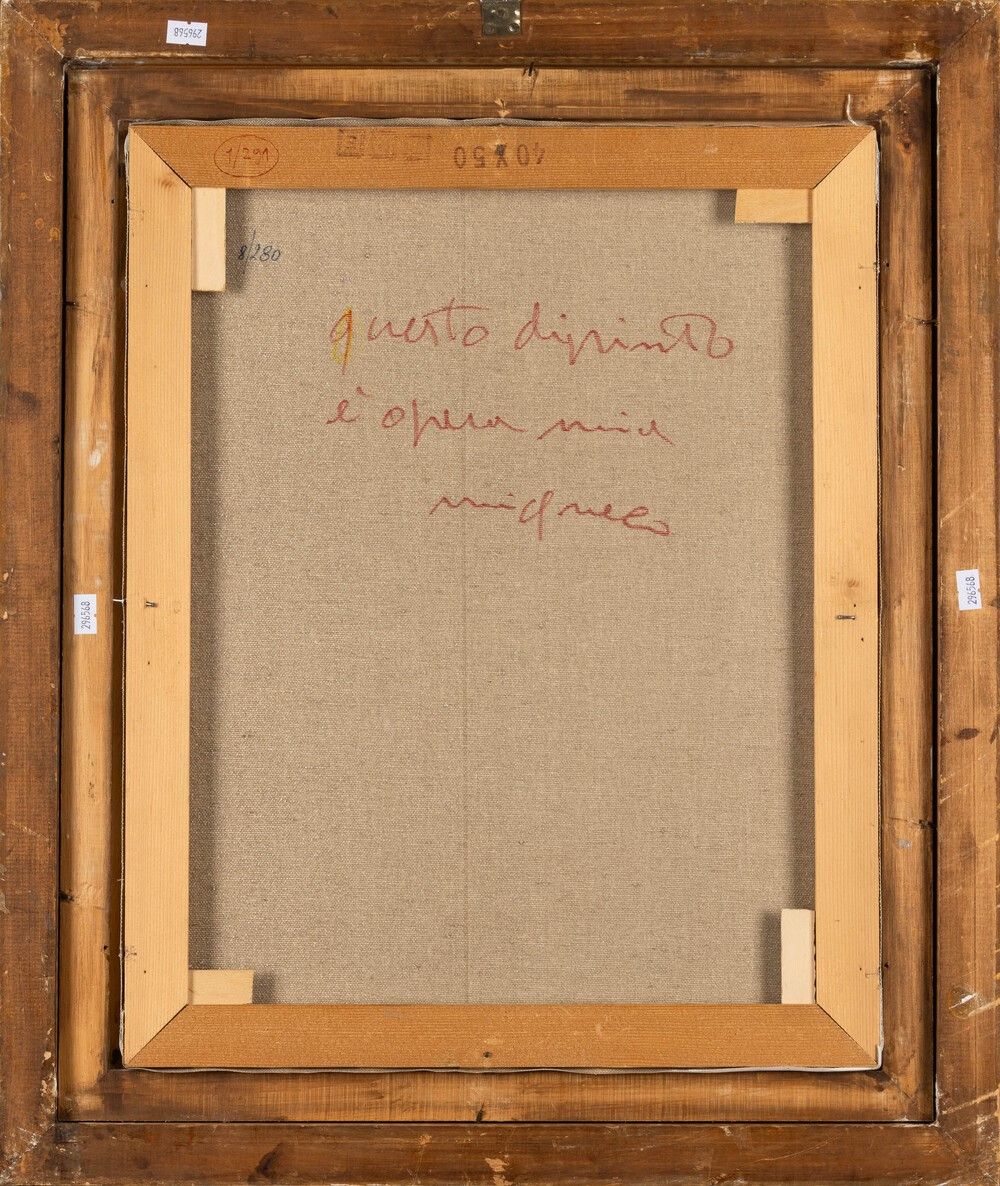 296568
1/291
40X50
8/280
questo dipinto
è opera mia
migneco
296568
296568